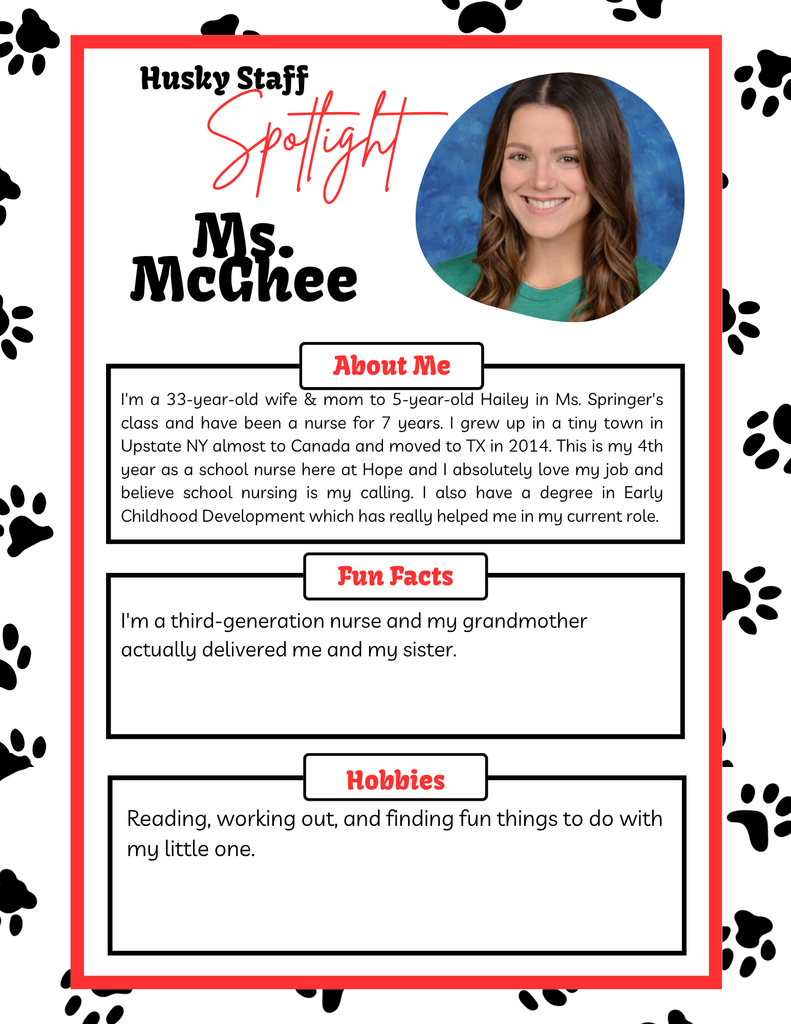 Husky Staff
Spotlight
Ms.
McGhee
About Me
I'm a 33-year-old wife & mom to 5-year-old Hailey in Ms. Springer's
class and have been a nurse for 7 years. I grew up in a tiny town in
Upstate NY almost to Canada and moved to TX in 2014. This is my 4th
year as a school nurse here at Hope and I absolutely love my job and
believe school nursing is my calling. I also have a degree in Early
Childhood Development which has really helped me in my current role.
Fun Facts
I'm a third-generation nurse and my grandmother
actually delivered me and my sister.
Hobbies
Reading, working out, and finding fun things to do with
my little one.